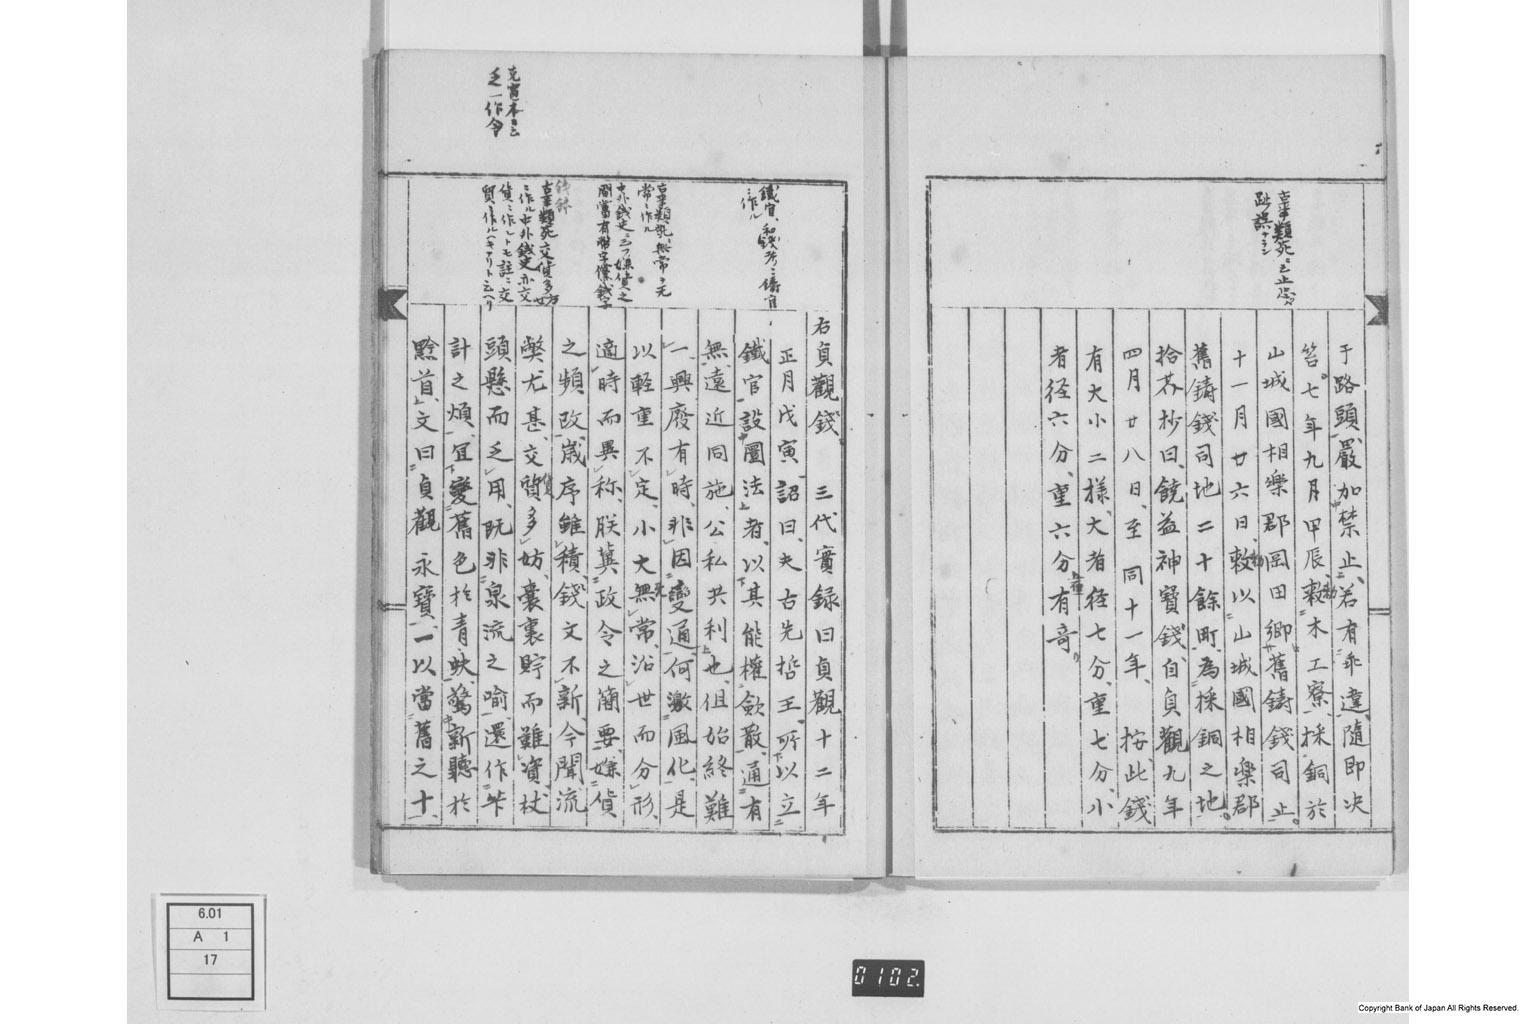 古事類苑ニ止ニ
趾誤ナラン
于路頭嚴加禁止若有乖違隨即决
笞七年九月甲辰敕木工寮採銅於
山城國相樂郡岡田郷舊鑄錢司止
十一月廿六日敕以山城國相樂郡
舊鑄錢司地二十餘町為採銅之地
拾芥抄曰饒益神寶錢自貞觀九年
四月廿八日至同十一年按此錢
有大小二様大者径七分重七分小
者径六分重六分有奇
鐵官和錢考ニ鑄官
ニ作ル
古事類苑無常ヲ无
常ニ作ル
中外錢史ニ云フ嫌貨之
間當有幣字
古事類苑交貨多方
ニ作ル中外錢史亦交
貨ニ作ルトモ註ニ交
貿ニ作ルハキナリト云ヘリ
乏一作令
右貞觀錢三代實録曰貞觀十二年
正月戊寅詔曰夫古先哲王所以立
鐵官設圜法者以其能權歛散通有
無遠近同施公私共利也但始終難
一興廢有時非因變通何激風化是
以軽重不定小大無常沿世而分形
適時而異称朕冀政令之簡要嫌貨
之頻改歳序雖積錢文不新今聞流
弊尤甚交質多妨嚢裏貯而難資杖
頭懸而乏用既非泉流之喻還作
計之煩宜變舊色於青蚨驚新聽於
黔首文曰貞觀永寶一以當舊之十
6.01
A 1
17
0102
Copyright Bank of Japan All Rights Reserved.